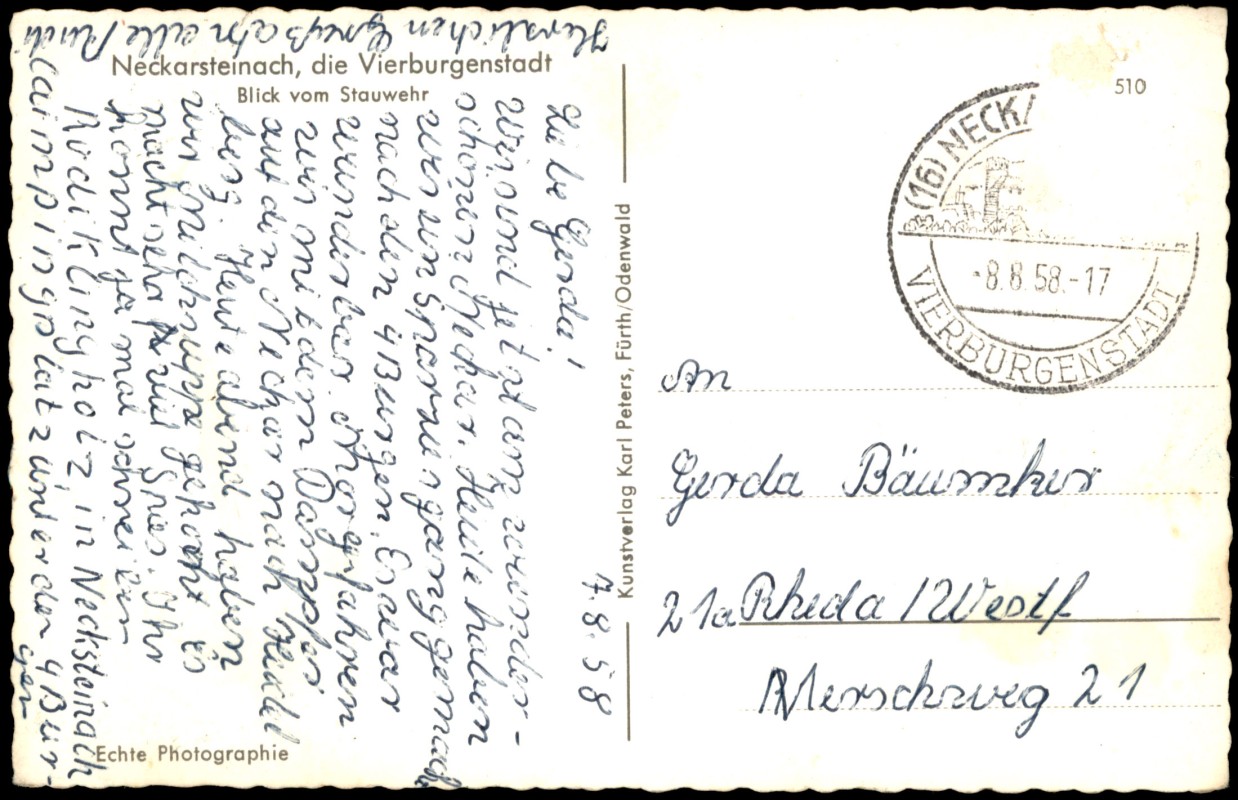 Neckarsteinach, die Vierburgenstadt
Blick vom Stauwehr
7.8.58
Liebe Gerda!
Wir sind jetzt am wunder-
schönen Neckar. Heute haben
wir ein Sparziergang gemach
nach den 4 Burgen. Es war
wunderbar. Morgen fahren
wir mit dem Dampfer
auf den Neckar nach Heidel
berg. Heute abend haben
wir Milchsuppe gekocht es
macht sehr viel Spies. Ihr
könnt ja mal schreiben
Rodi Klingholz in Necksteinach
Campingplatz unter den 4 Bur-
gen
Herzlichen Gruß an alle Rudi
Echte Photographie
Kunstverlag Karl Peters, Fürth/Odenwald
510
(16) NECKA
-8.8.58.-17
VIERBURGENSTADT
An
Gerda Bäumker
21a Rheda / Westf
Merschweg 21